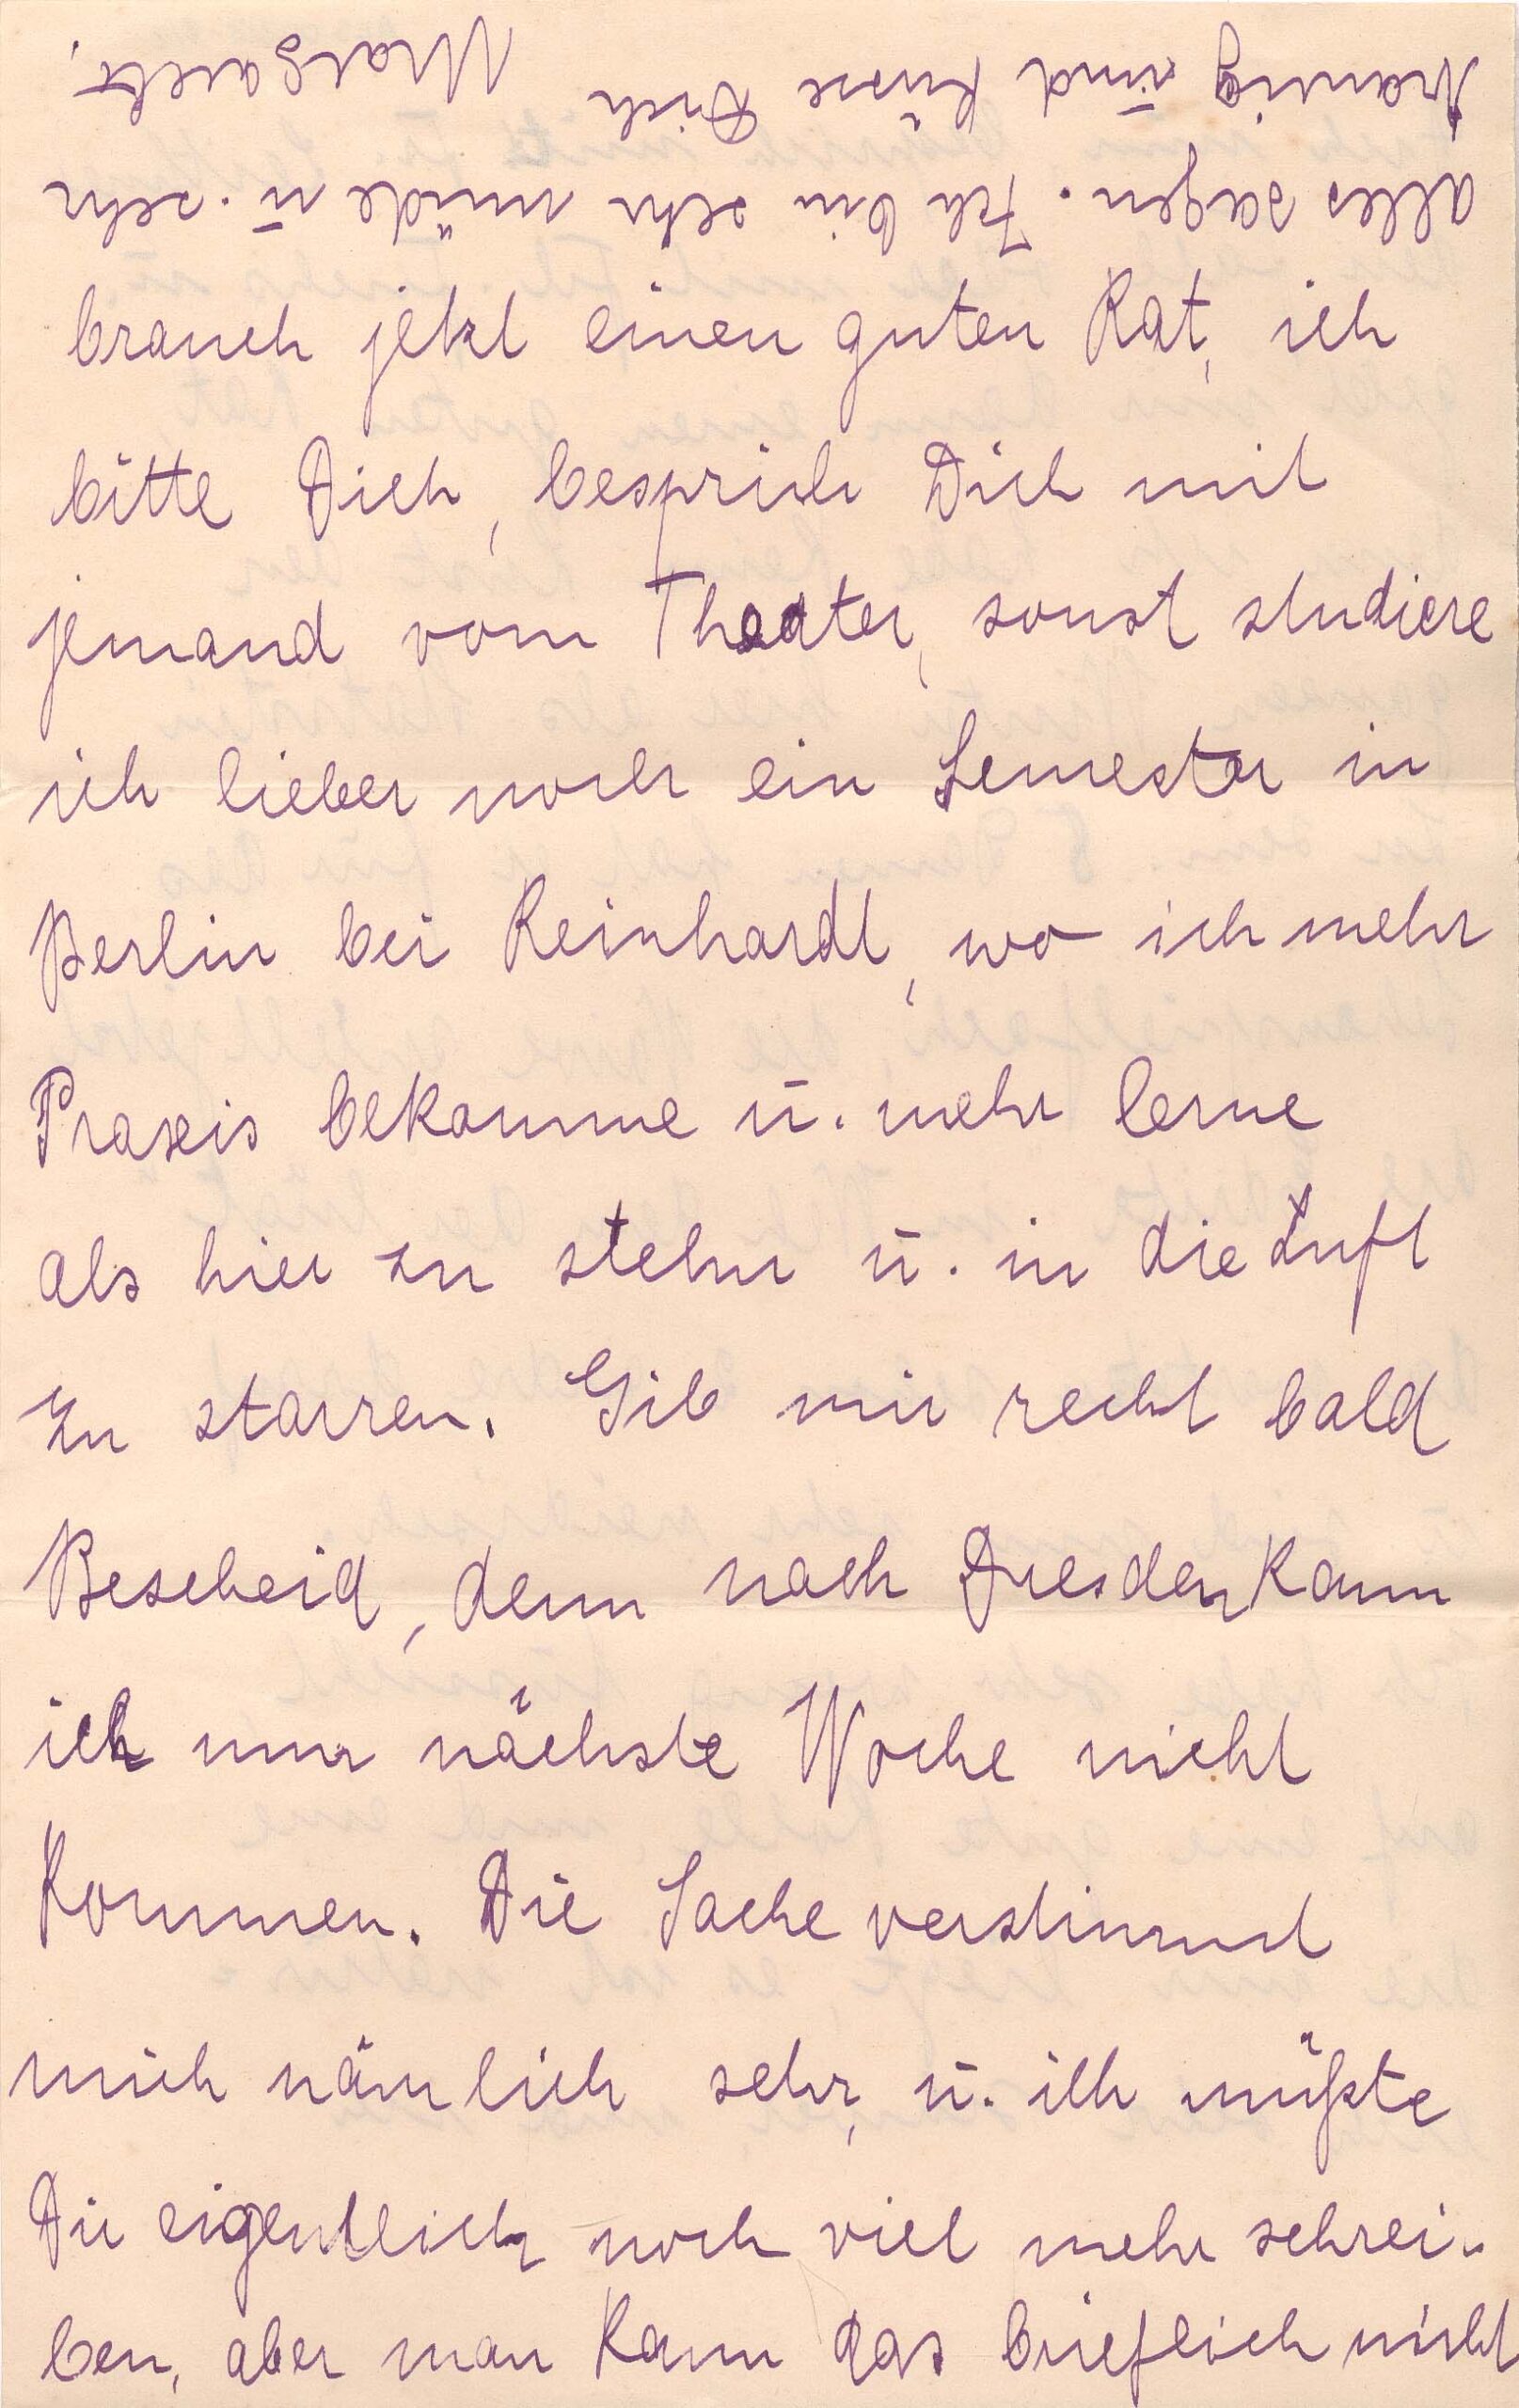 brauch jetzt einen guten Rat, ich
bitte Dich, besprich Dich mit
jemand vom Theater, sonst studiere
ich lieber noch ein Semester in
Berlin bei Reinhardt, wo ich mehr
Praxis bekomme u. mehr lerne
als hier zu stehn u. in die Luft
zu starren. Gib mir recht bald
Bescheid, denn nach Dresden kann
ich nun nächste Woche nicht
kommen. Die Sache verstimmt
mich nämlich sehr, u. ich müßte
Dir eigentlich noch viel mehr schrei-
ben, aber man kann das brieflich nicht
alles sagen. Ich bin sehr müde u. sehr
traurig und küsse Dich
Margarete.